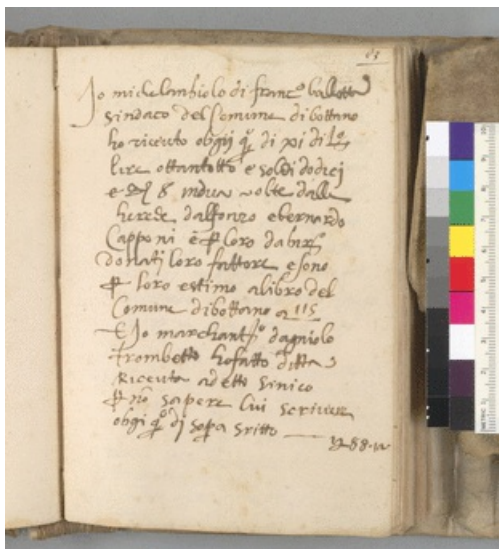 63
Io michelanbiolo di franc.o
sindaco del Comune di bottano
ho riceuto obgij q.o di xi di
lire ottantotto e soldi dodicj
e 8 volte dalle
herede dalfonzo e bernardo
Capponi e p loro da
donati loro fattore e sono
p loro estimo a libro del
Comune di bottano a 115
E Io marchant.o dagniolo
trombetto ho fatto ditta
riceuta a detto sinico
p no sapere lui scriuere
obgi q.o dj sopra sritto